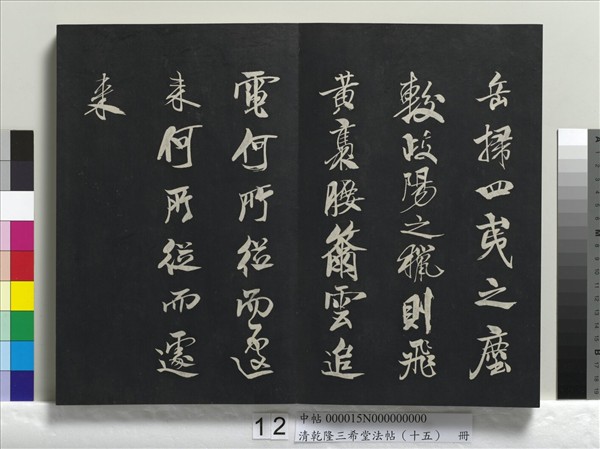 岳掃四夷之塵
較岐陽之獵則飛
黃褭腰籋雲追
電何所從而遽
来何所從而遽
来
12
中帖 000015N000000000
清乾隆三希堂法帖(十五) 冊